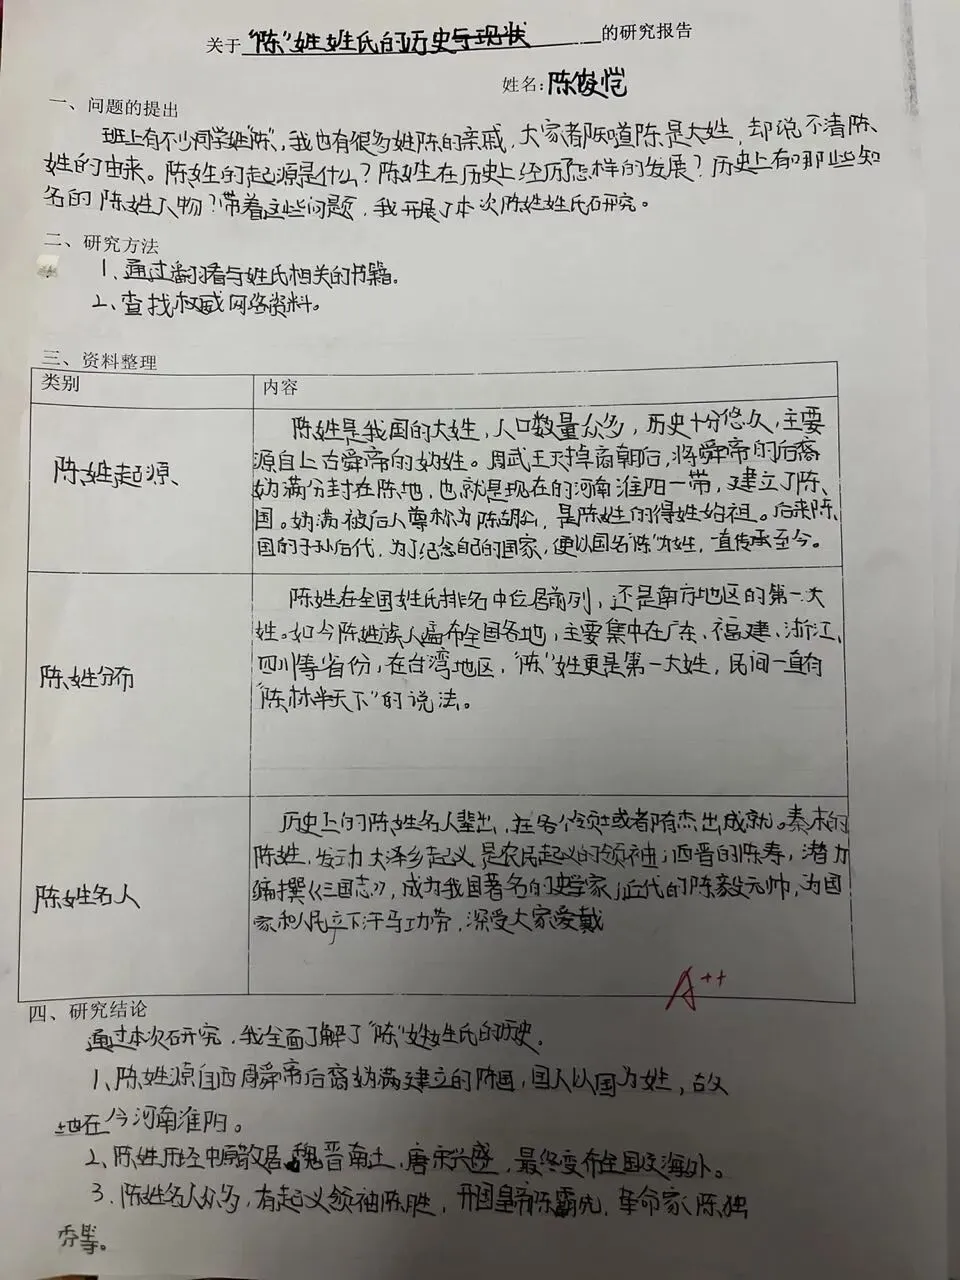 关于"陈"姓姓氏的历史与现状的研究报告
姓名:陈俊恺
一、问题的提出
班上有不少同学姓"陈",我也有很多姓陈的亲戚,大家都知道陈是大姓,却说不清陈
姓的由来。陈姓的起源是什么?陈姓在历史上经历怎样的发展?历史上有哪些知
名的陈姓人物?带着这些问题,我开展了本次陈姓姓氏研究。
二、研究方法
1、通过翻看与姓氏相关的书籍。
2、查找权威网络资料。
三、资料整理
类别 内容
陈姓起源
陈姓是我国的大姓,人口数量众多,历史十分悠久,主要
源自上古舜帝的妫姓。周武王灭掉商朝后,将舜帝的后裔
妫满分封在陈地,也就是现在的河南淮阳一带,建立了陈
国。妫满被后人尊称为陈胡公,是陈姓的得姓始祖。后来陈
国的子孙后代,为了纪念自己的国家,便以国名"陈"为姓,一直传承至今。
陈姓分布
陈姓在全国姓氏排名中位居前列,还是南方地区的第一大
姓。如今陈姓族人遍布全国各地,主要集中在广东、福建、浙江、
四川等省份,在台湾地区,"陈"姓更是第一大姓,民间一直有
"陈林半天下"的说法。
陈姓名人
历史上的陈姓名人辈出,在各个领域都有杰出成就。秦末的
陈姓,发动大泽乡起义是农民起义的领袖;西晋的陈寿,潜力
编撰《三国志》,成为我国著名的史学家;近代的陈毅元帅,为国
家和人民立下汗马功劳,深受大家爱戴
A++
四、研究结论
通过本次研究,我全面了解了"陈"姓姓氏的历史。
1、陈姓源自西周舜帝后裔妫满建立的陈国,国人以国为姓,故
地在今河南淮阳。
2、陈姓历经中原散居、魏晋南土,唐宋兴盛,最终变布全国及海外。
3、陈姓名人众多,有起义领袖陈胜,开国皇帝陈霸先,革命家陈独
秀等。